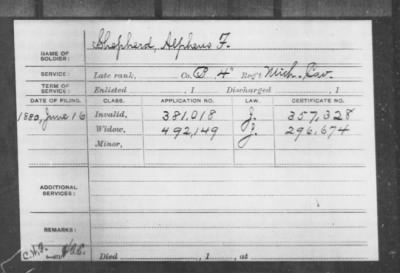 Shepherd, Alpheus F.
NAME OF SOLDIER:
SERVICE: Late rank, Co. B, 4" Reg't Mich. Cav.
TERM OF SERVICE: Enlisted , 1 Discharged , 1
DATE OF FILING. CLASS. APPLICATION NO. LAW. CERTIFICATE NO.
1880, June 16 Invalid, 381,018 J. 357,328
Widow, 492,149 J. 296,674
Minor,
ADDITIONAL SERVICES:
REMARKS:
Died , 1 , at